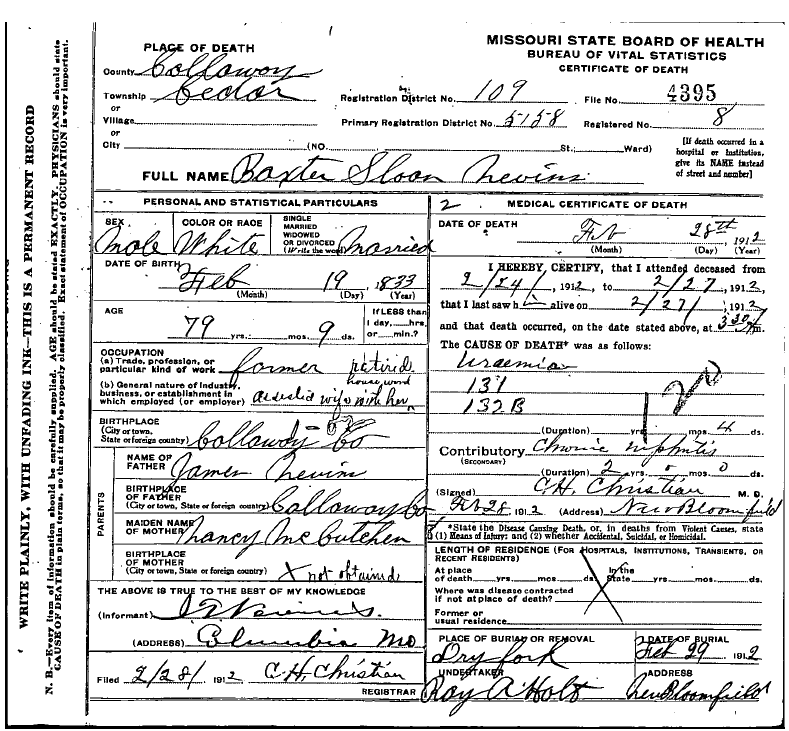 MISSOURI STATE BOARD OF HEALTH
BUREAU OF VITAL STATISTICS
CERTIFICATE OF DEATH
PLACE OF DEATH
County Callaway
Township Cedar Registration District No. 109 File No. 4395
or
Village Primary Registration District No. 5158 Registered No. 8
or
City (NO. St.; Ward)
[If death occurred in a hospital or institution, give its NAME instead of street and number]
FULL NAME Baxter Sloan Nevins
PERSONAL AND STATISTICAL PARTICULARS
SEX Male
COLOR OR RACE White
SINGLE MARRIED WIDOWED OR DIVORCED (Write the word) Married
DATE OF BIRTH Feb 19, 1833
(Month) (Day) (Year)
AGE 79 yrs. mos. 9 ds.
If LESS than 1 day, hrs. or min.?
OCCUPATION
(a) Trade, profession, or particular kind of work farmer retired
(b) General nature of industry, business, or establishment in which employed (or employer) assisted wife with her house word
BIRTHPLACE
(City or town, State or foreign country) Callaway Co
PARENTS
NAME OF FATHER James Nevins
BIRTHPLACE OF FATHER
(City or town, State or foreign country) Callaway Co
MAIDEN NAME OF MOTHER Nancy McCutchen
BIRTHPLACE OF MOTHER
(City or town, State or foreign country) X not obtained
THE ABOVE IS TRUE TO THE BEST OF MY KNOWLEDGE
(Informant)
(ADDRESS) Columbia Mo
Filed 2/28/ 1912 C.H. Christian
REGISTRAR
2 MEDICAL CERTIFICATE OF DEATH
DATE OF DEATH Feb 28th, 1912
(Month) (Day) (Year)
I HEREBY CERTIFY, that I attended deceased from
2/24/, 1912, to 2/27, 1912,
that I last saw h alive on 2/27/, 1912,
and that death occurred, on the date stated above, at 3 30 m.
The CAUSE OF DEATH* was as follows:
Uraemia
131
132B
(Duration) yrs. mos. 4 ds.
Contributory Chronic nephritis
(SECONDARY)
(Duration) 2 yrs. 0 mos. 0 ds.
(Signed) C.H. Christian M. D.
Feb 28, 1912 (Address) New Bloomfield
*State the Disease Causing Death, or, in deaths from Violent Causes, state
(1) Means of Injury; and (2) whether Accidental, Suicidal, or Homicidal.
LENGTH OF RESIDENCE (FOR HOSPITALS, INSTITUTIONS, TRANSIENTS, OR RECENT RESIDENTS)
At place of death yrs. mos. ds. In the State yrs. mos. ds.
Where was disease contracted if not at place of death?
Former or usual residence
PLACE OF BURIAL OR REMOVAL Dry fork
DATE OF BURIAL Feb 29, 1912
UNDERTAKER Roy A Holt
ADDRESS New Bloomfield
WRITE PLAINLY, WITH UNFADING INK—THIS IS A PERMANENT RECORD
N. B.—Every item of information should be carefully supplied. AGE should be stated EXACTLY. PHYSICIANS should state
CAUSE OF DEATH in plain terms, so that it may be properly classified. Exact statement of OCCUPATION is very important.